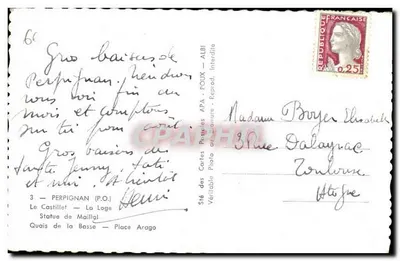 Gros baisers de
Perpignan. Viendrons
vous voir fin du
mois et comptons
sur toi pour août.
Gros baisers de
Jenny,
et moi. A bientôt
Henri
3 - PERPIGNAN (P.O.)
Le Castillet - La Loge
Statue de Maillol
Quais de la Basse - Place Arago
Sté des Cartes Postales APA - POUX - ALBI
Véritable Photo au Bromure - Exprod. Interdite
REPUBLIQUE FRANÇAISE
0,25
Madame Boyer Elisabeth
3 Rue Dalayrac
Toulouse
Hte Gne